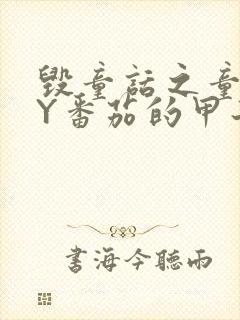 毁童话之童
Y番茄的甲
書海今聽雨